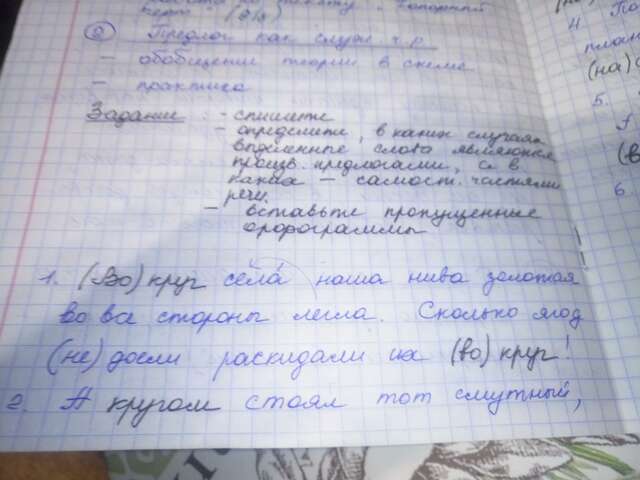 (2) Предлог как служ. ч.р.
— обобщение теории в схеме
— практика
Задание: – спишите
– определите, в каких случаях
выделенные слова являются
произв. предлогами, а в
каких — самост. частями
речи.
– вставьте пропущенные
орфограммы
1. (Во)круг села наша нива золотая
во все стороны легла. Сколько ягод
(не)доели раскидали их (во)круг!
2. А кругом стоял тот смутный,
4. По
план
(на)
5.
(в
6.